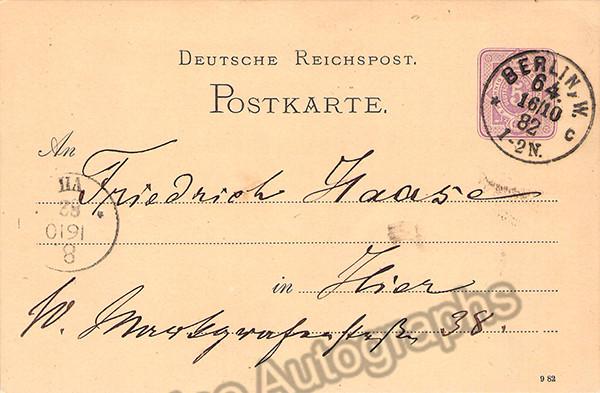 DEUTSCHE REICHSPOST.
POSTKARTE.
BERLIN, W.
64.
16/10
82
1-2N.
* c
An Friedrich Haase
in Hier
W. Markgrafenstraße 38.
VII
82
16/10
8
*
9 82
Autographs